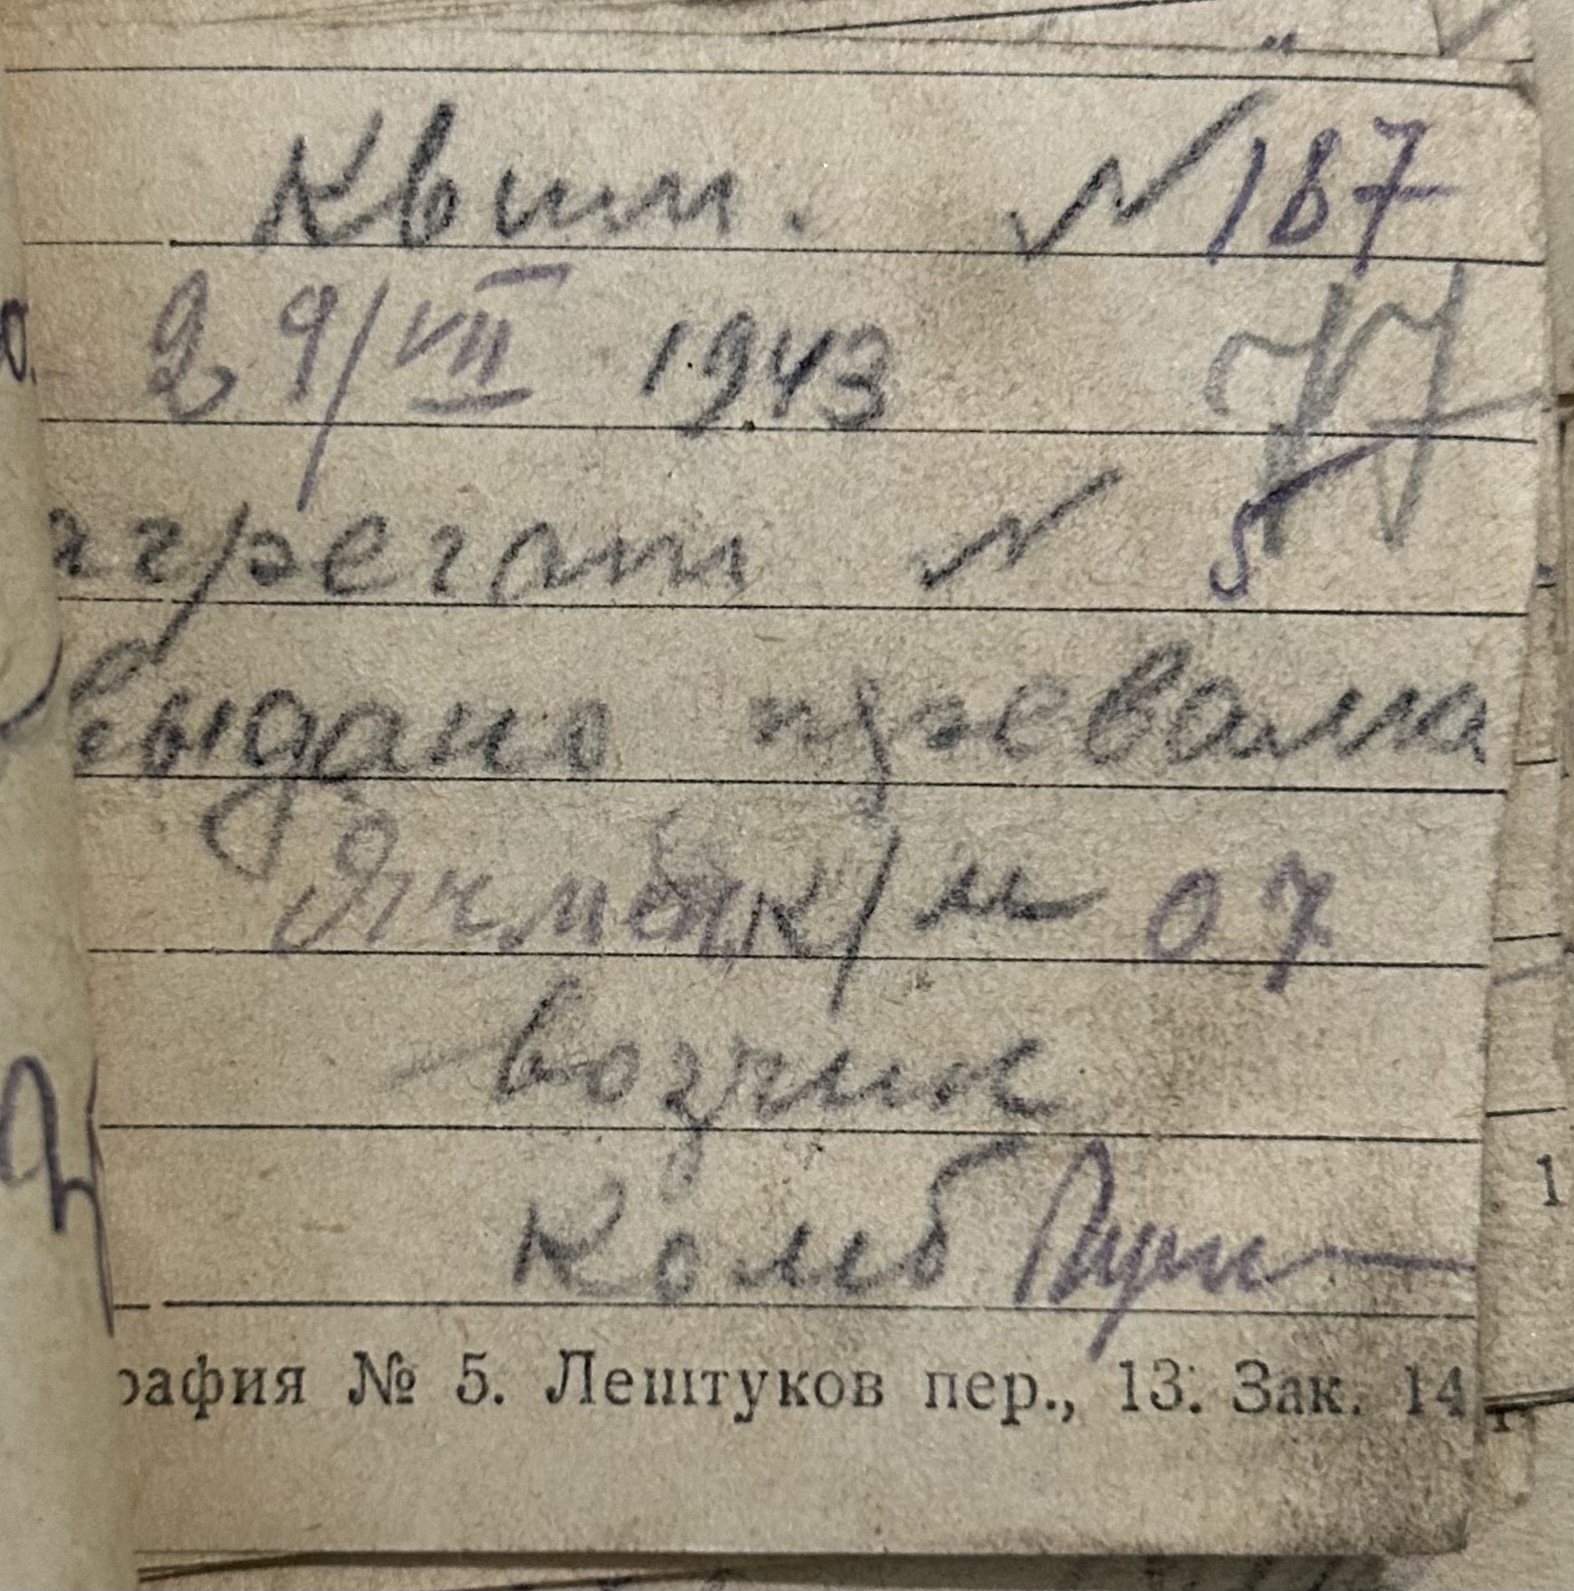 Квит. № 187
29/VII 1943 77
агрегат № 5
Выдано
Ячмен к/м 07
возчик
Колб
рафия № 5. Лештуков пер., 13. Зак. 14